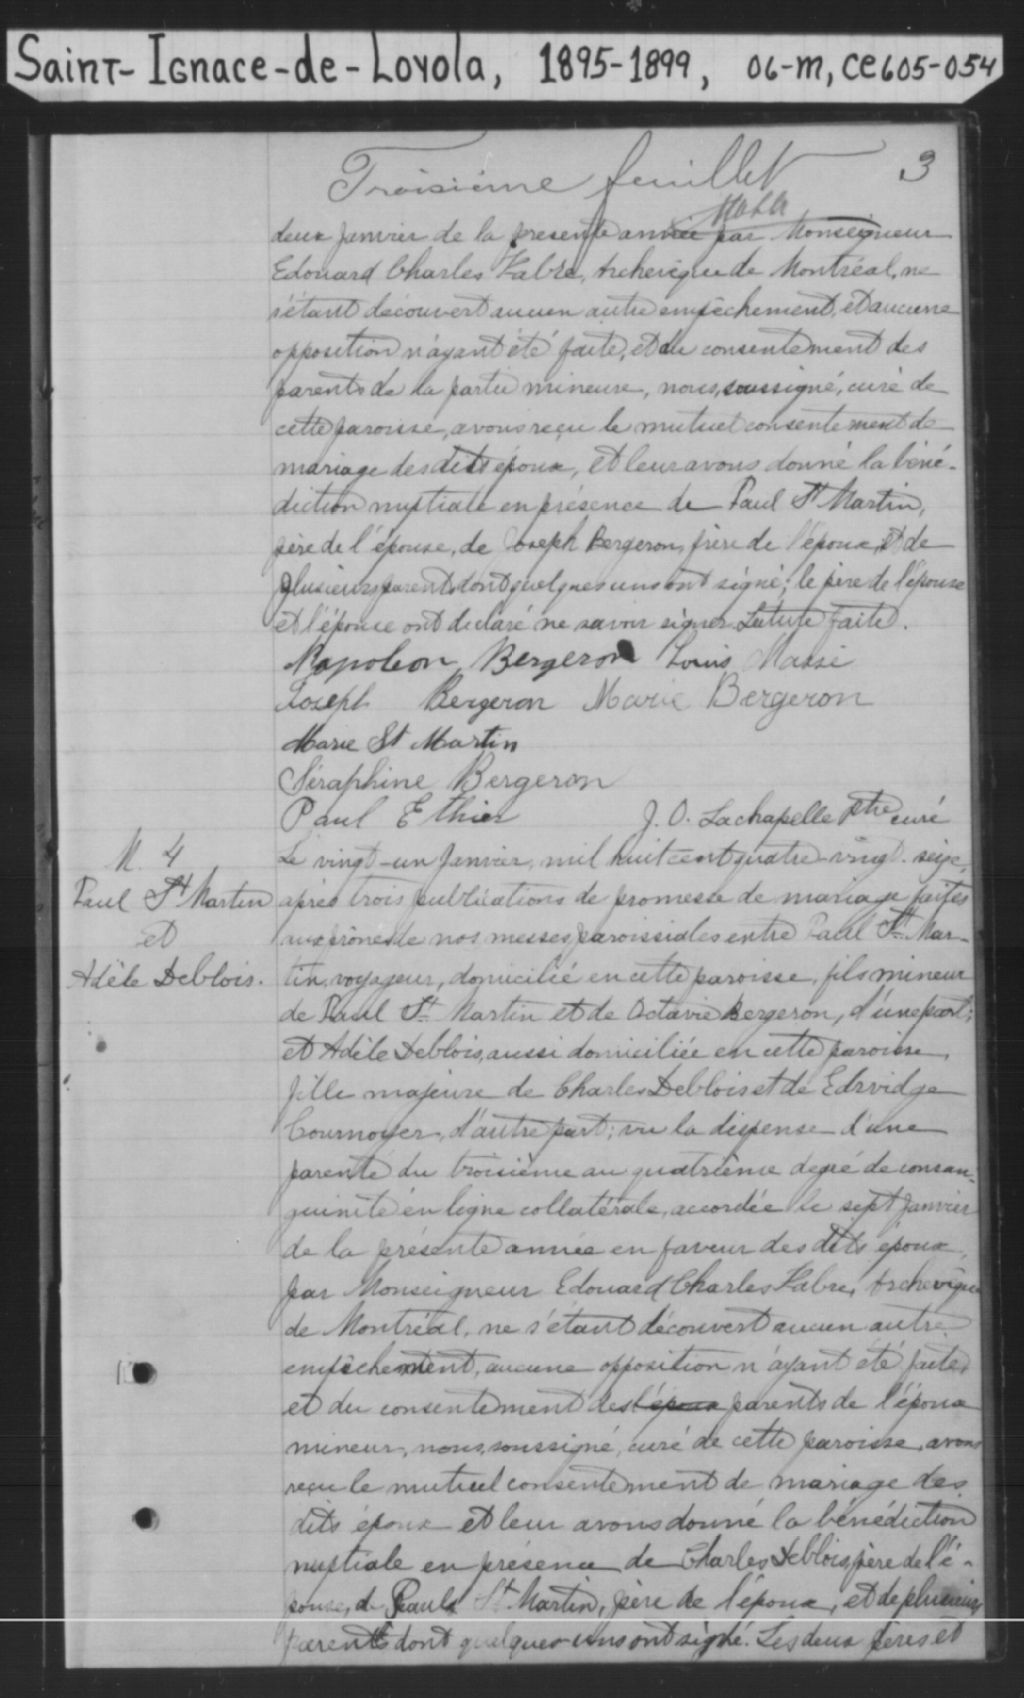 Saint-Ignace-de-Loyola, 1895-1899, 06-M, CE605-054
Troisième feuillet
3
deux janvier de la présente année par Monseigneur
Edouard Charles Fabre, Archevêque de Montréal, ne
s'étant découvert aucun autre empêchement, et aucune
opposition n'ayant été faite, et du consentement des
parents de la partie mineure, nous, soussigné, curé de
cette paroisse, avons reçu le mutuel consentement de
mariage des dits époux, et leur avons donné la béné-
diction nuptiale en présence de Paul St Martin,
père de l'épouse, de Joseph Bergeron, frère de l'époux, et de
plusieurs parents dont quelques uns ont signé; le père de l'épouse
et l'épouse ont déclaré ne savoir signer. Lecture faite.
Napoleon Bergeron Louis Massé
Joseph Bergeron Marie Bergeron
Marie St Martin
Séraphine Bergeron
Paul Ethier J. O. Lachapelle ptre curé
M. 4
Paul St Martin
et
Adèle Deblois.
Le vingt-un janvier, mil huit cent quatre-vingt-seize,
après trois publications de promesse de mariage faites
aux prônes de nos messes paroissiales entre Paul St Mar-
tin, voyageur, domicilié en cette paroisse, fils mineur
de Paul St Martin et de Octavie Bergeron, d'une part;
et Adèle Deblois, aussi domiciliée en cette paroisse,
fille majeure de Charles Deblois et de Edwidge
Cournoyer, d'autre part; vu la dispense d'une
parenté du troisième au quatrième degré de consan-
guinité en ligne collatérale, accordée le sept janvier
de la présente année en faveur des dits époux,
par Monseigneur Edouard Charles Fabre, Archevêque
de Montréal, ne s'étant découvert aucun autre
empêchement, aucune opposition n'ayant été faite,
et du consentement des l'époux parents de l'époux
mineur, nous, soussigné, curé de cette paroisse, avons
reçu le mutuel consentement de mariage des
dits époux et leur avons donné la bénédiction
nuptiale en présence de Charles Deblois, père de l'é-
pouse, de Paul St Martin, père de l'époux, et de plusieurs
parents dont quelques-uns ont signé. Les deux pères et